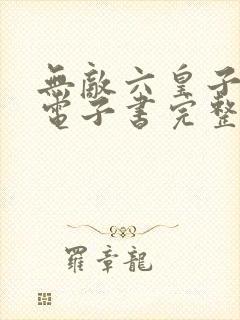 無敵六皇子
電子書完整
羅章龍